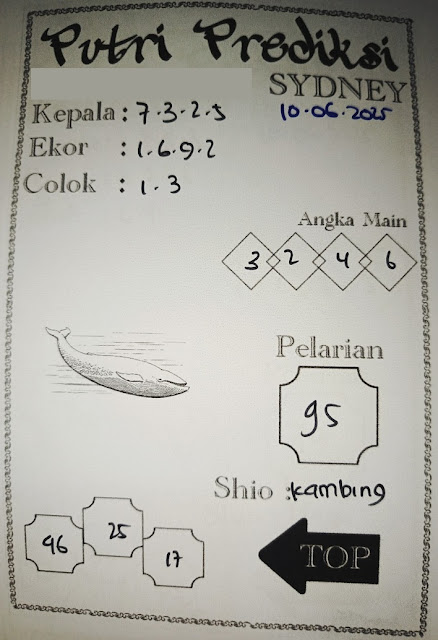 Putri Prediksi
SYDNEY
10-06-2025
Kepala : 7-3-2-5
Ekor : 1-6-9-2
Colok : 1-3
Angka Main
3 2 4 6
Pelarian
95
Shio : kambing
96 25 17
TOP